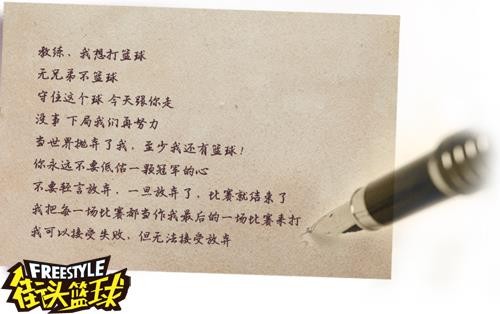 教练，我想打篮球
无兄弟不篮球
守住这个球 今天跟你走
没事 下局我们再努力
当世界抛弃了我，至少我还有篮球！
你永远不要低估一颗冠军的心
不要轻言放弃，一旦放弃了，比赛就结束了
我把每一场比赛都当作我最后的一场比赛来打
我可以接受失败，但无法接受放弃
FREESTYLE
街头篮球